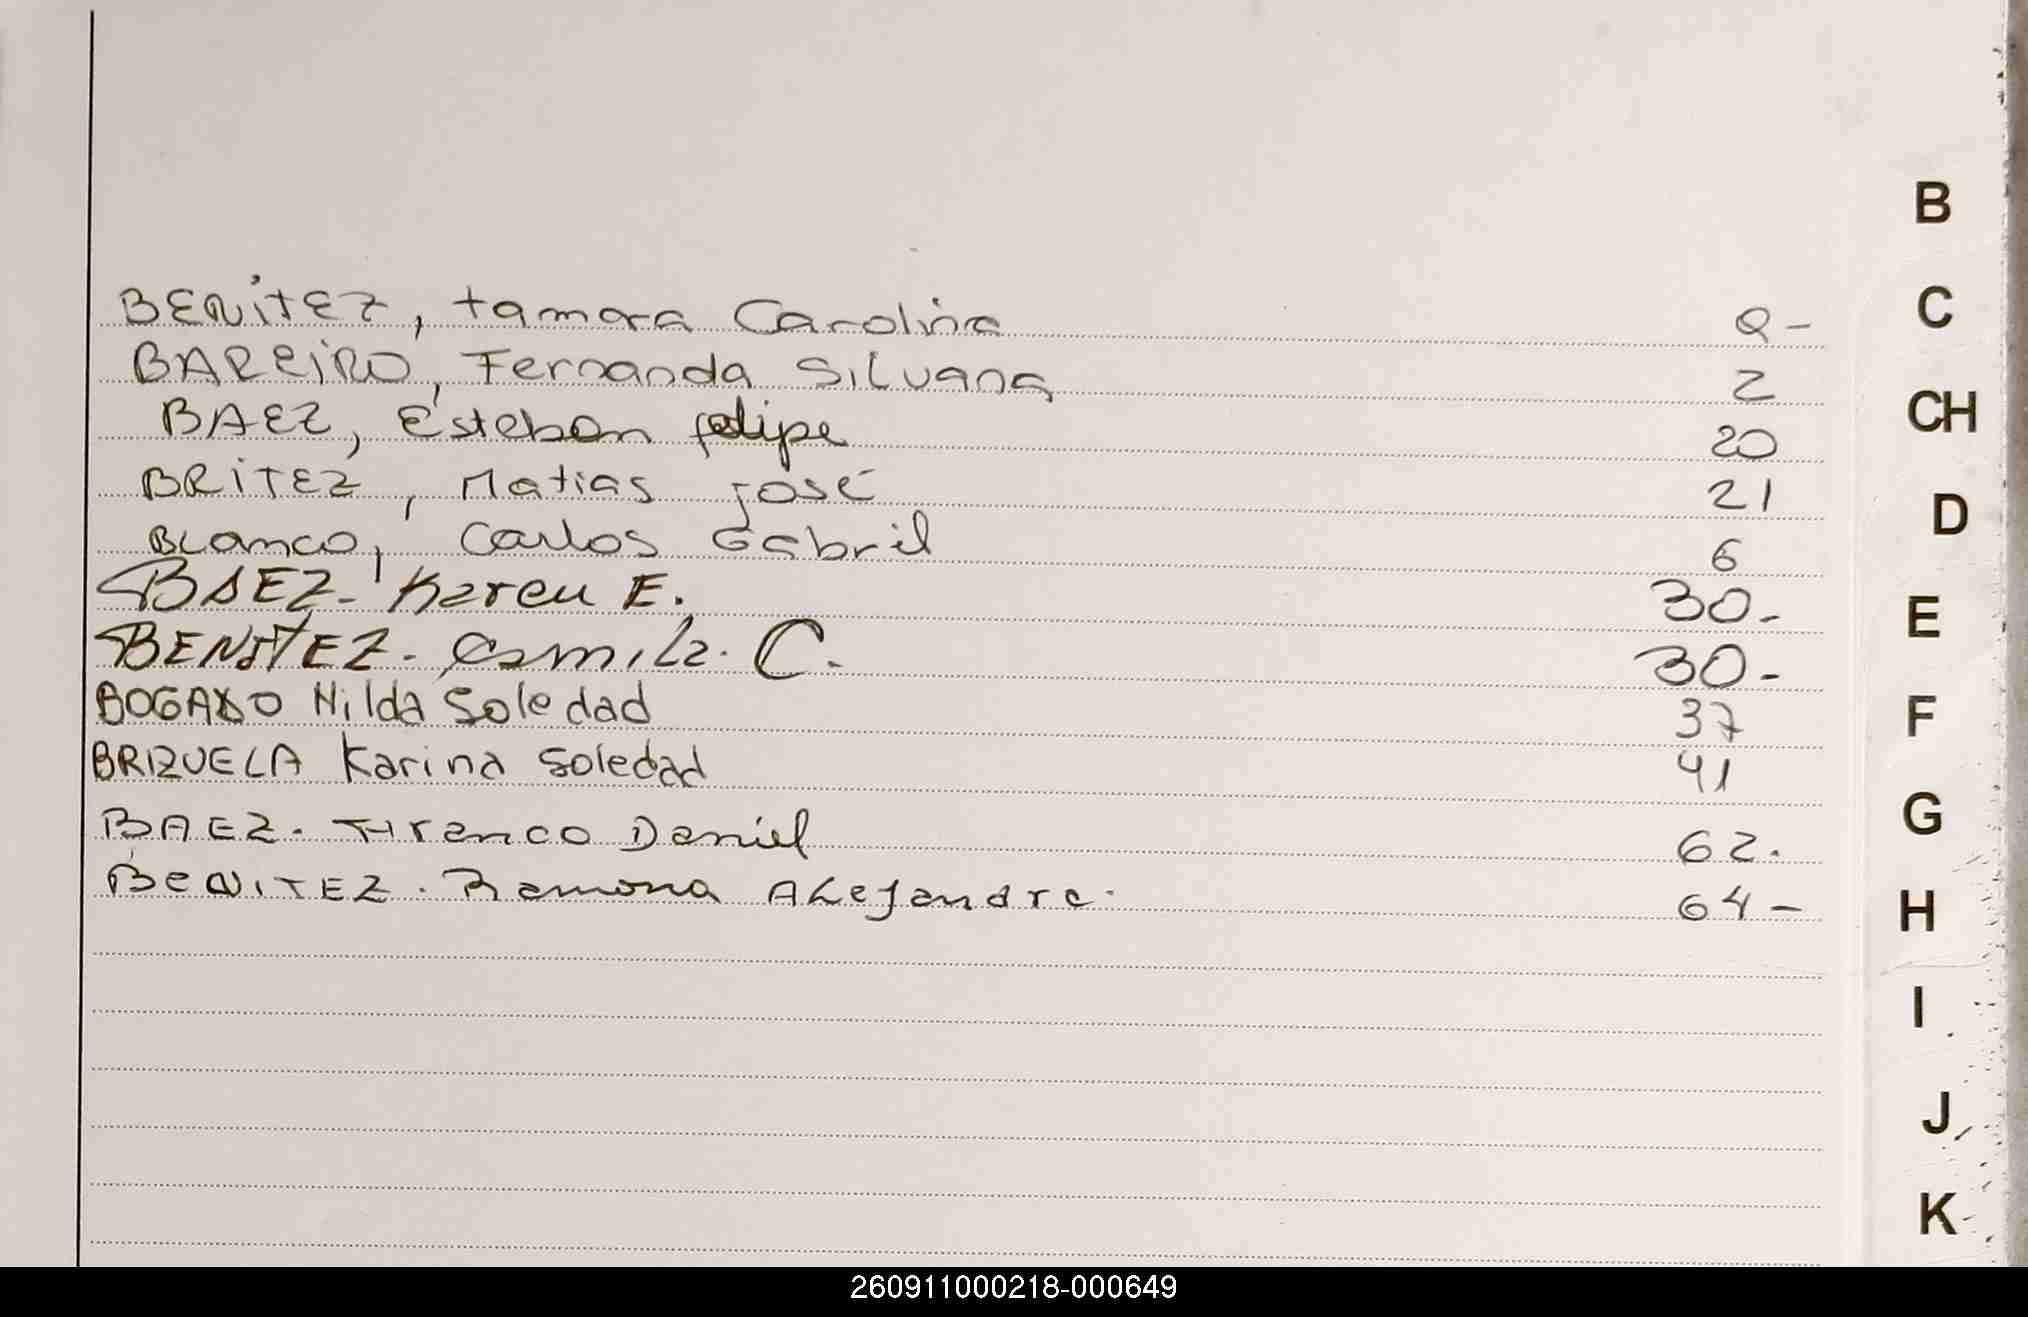 BENITEZ, tamara Carolina
BAREIRO, Fernanda Silvana 2
BAEZ, Esteban felipe 20
BRITEZ, Matias José 21
BLANCO, Carlos Gabril 6
BAEZ- Karen E. 30-
BENITEZ- Camila. C. 30-
BOGADO Nilda Soledad 37
BRIZUELA Karina Soledad 41
BAEZ. Daniel 62.
BENITEZ. Ramona ALejandra. 64-
B
C
CH
D
E
F
G
H
I
J
K
260911000218-000649